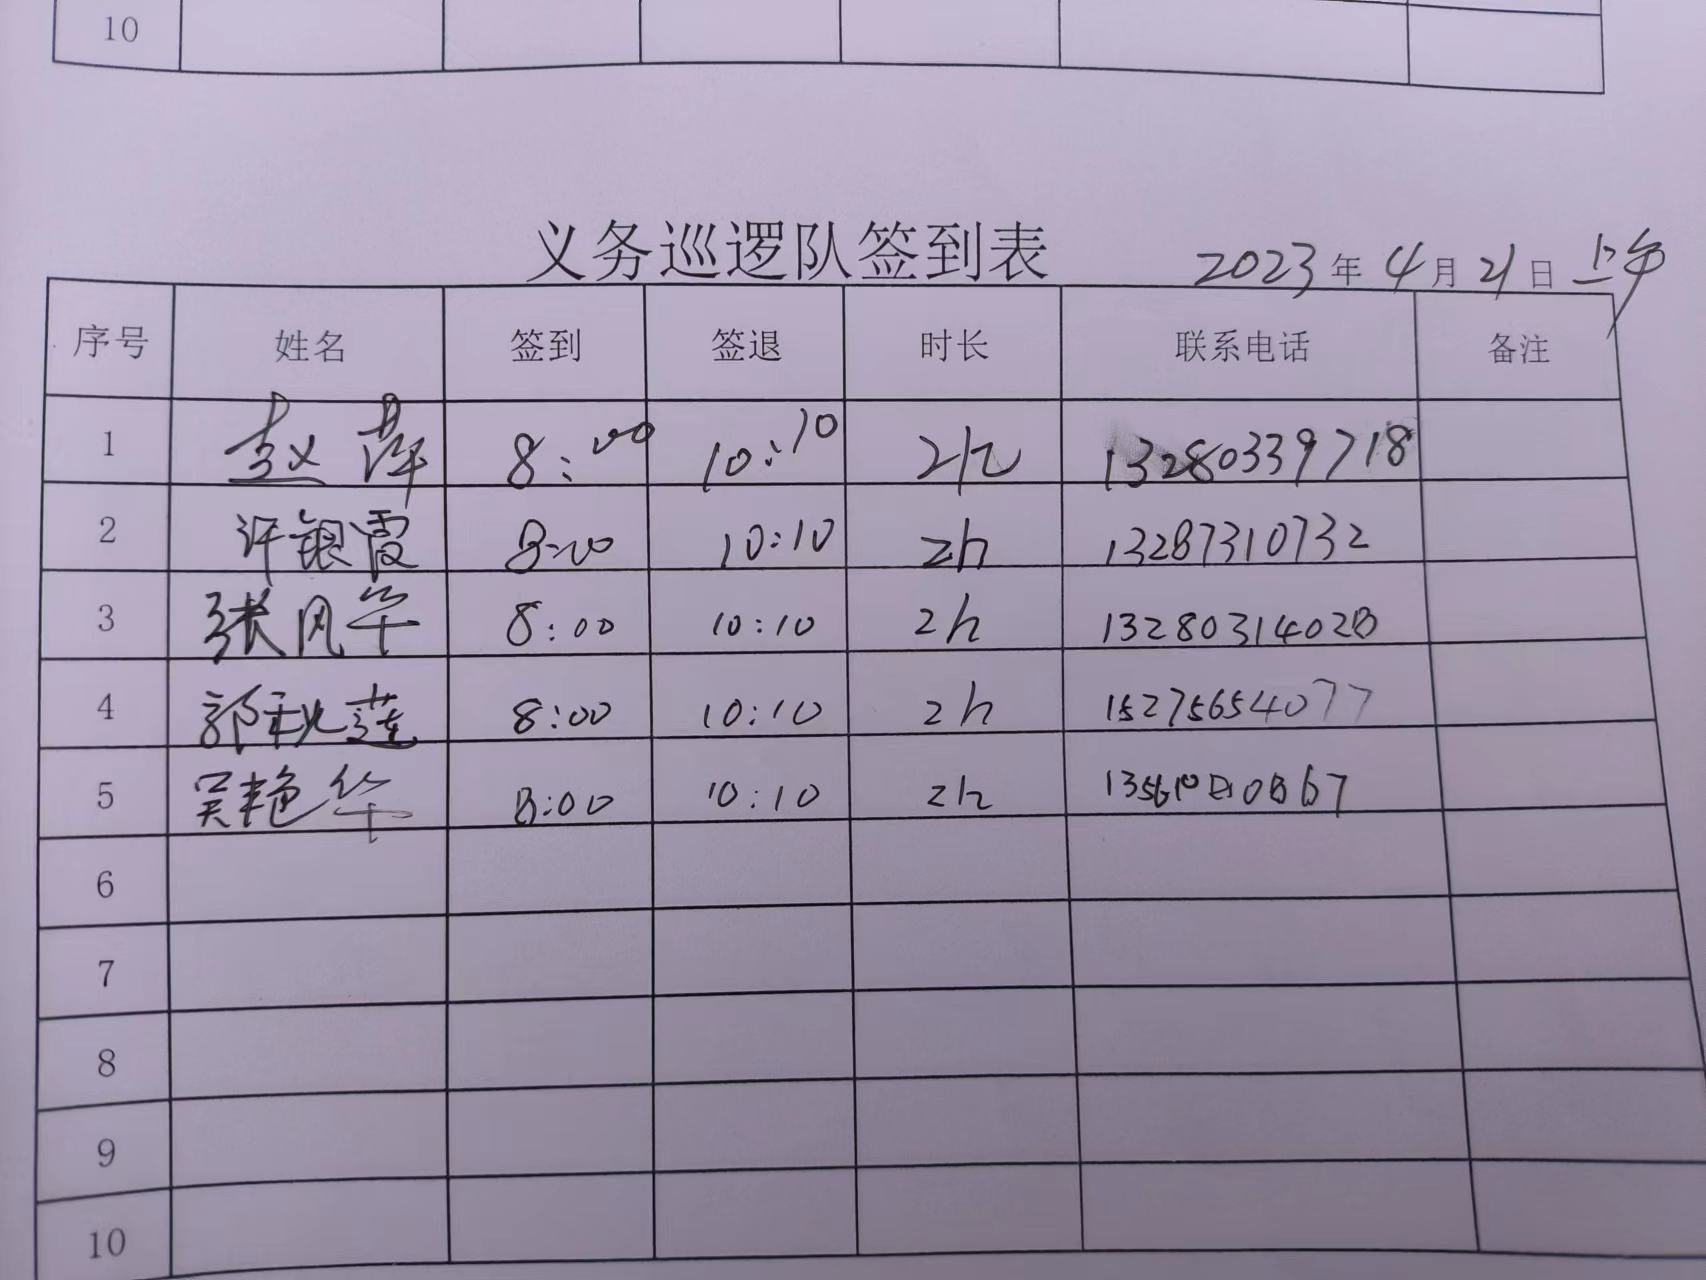 10
义务巡逻队签到表 2023年4月21日 上午
序号 姓名 签到 签退 时长 联系电话 备注
1 赵萍 8:00 10:10 2h 13280339718
2 许银霞 8:00 10:10 2h 13287310732
3 张凤华 8:00 10:10 2h 13280314028
4 郭秋莲 8:00 10:10 2h 15275654077
5 吴艳华 8:00 10:10 2h
6
7
8
9
10